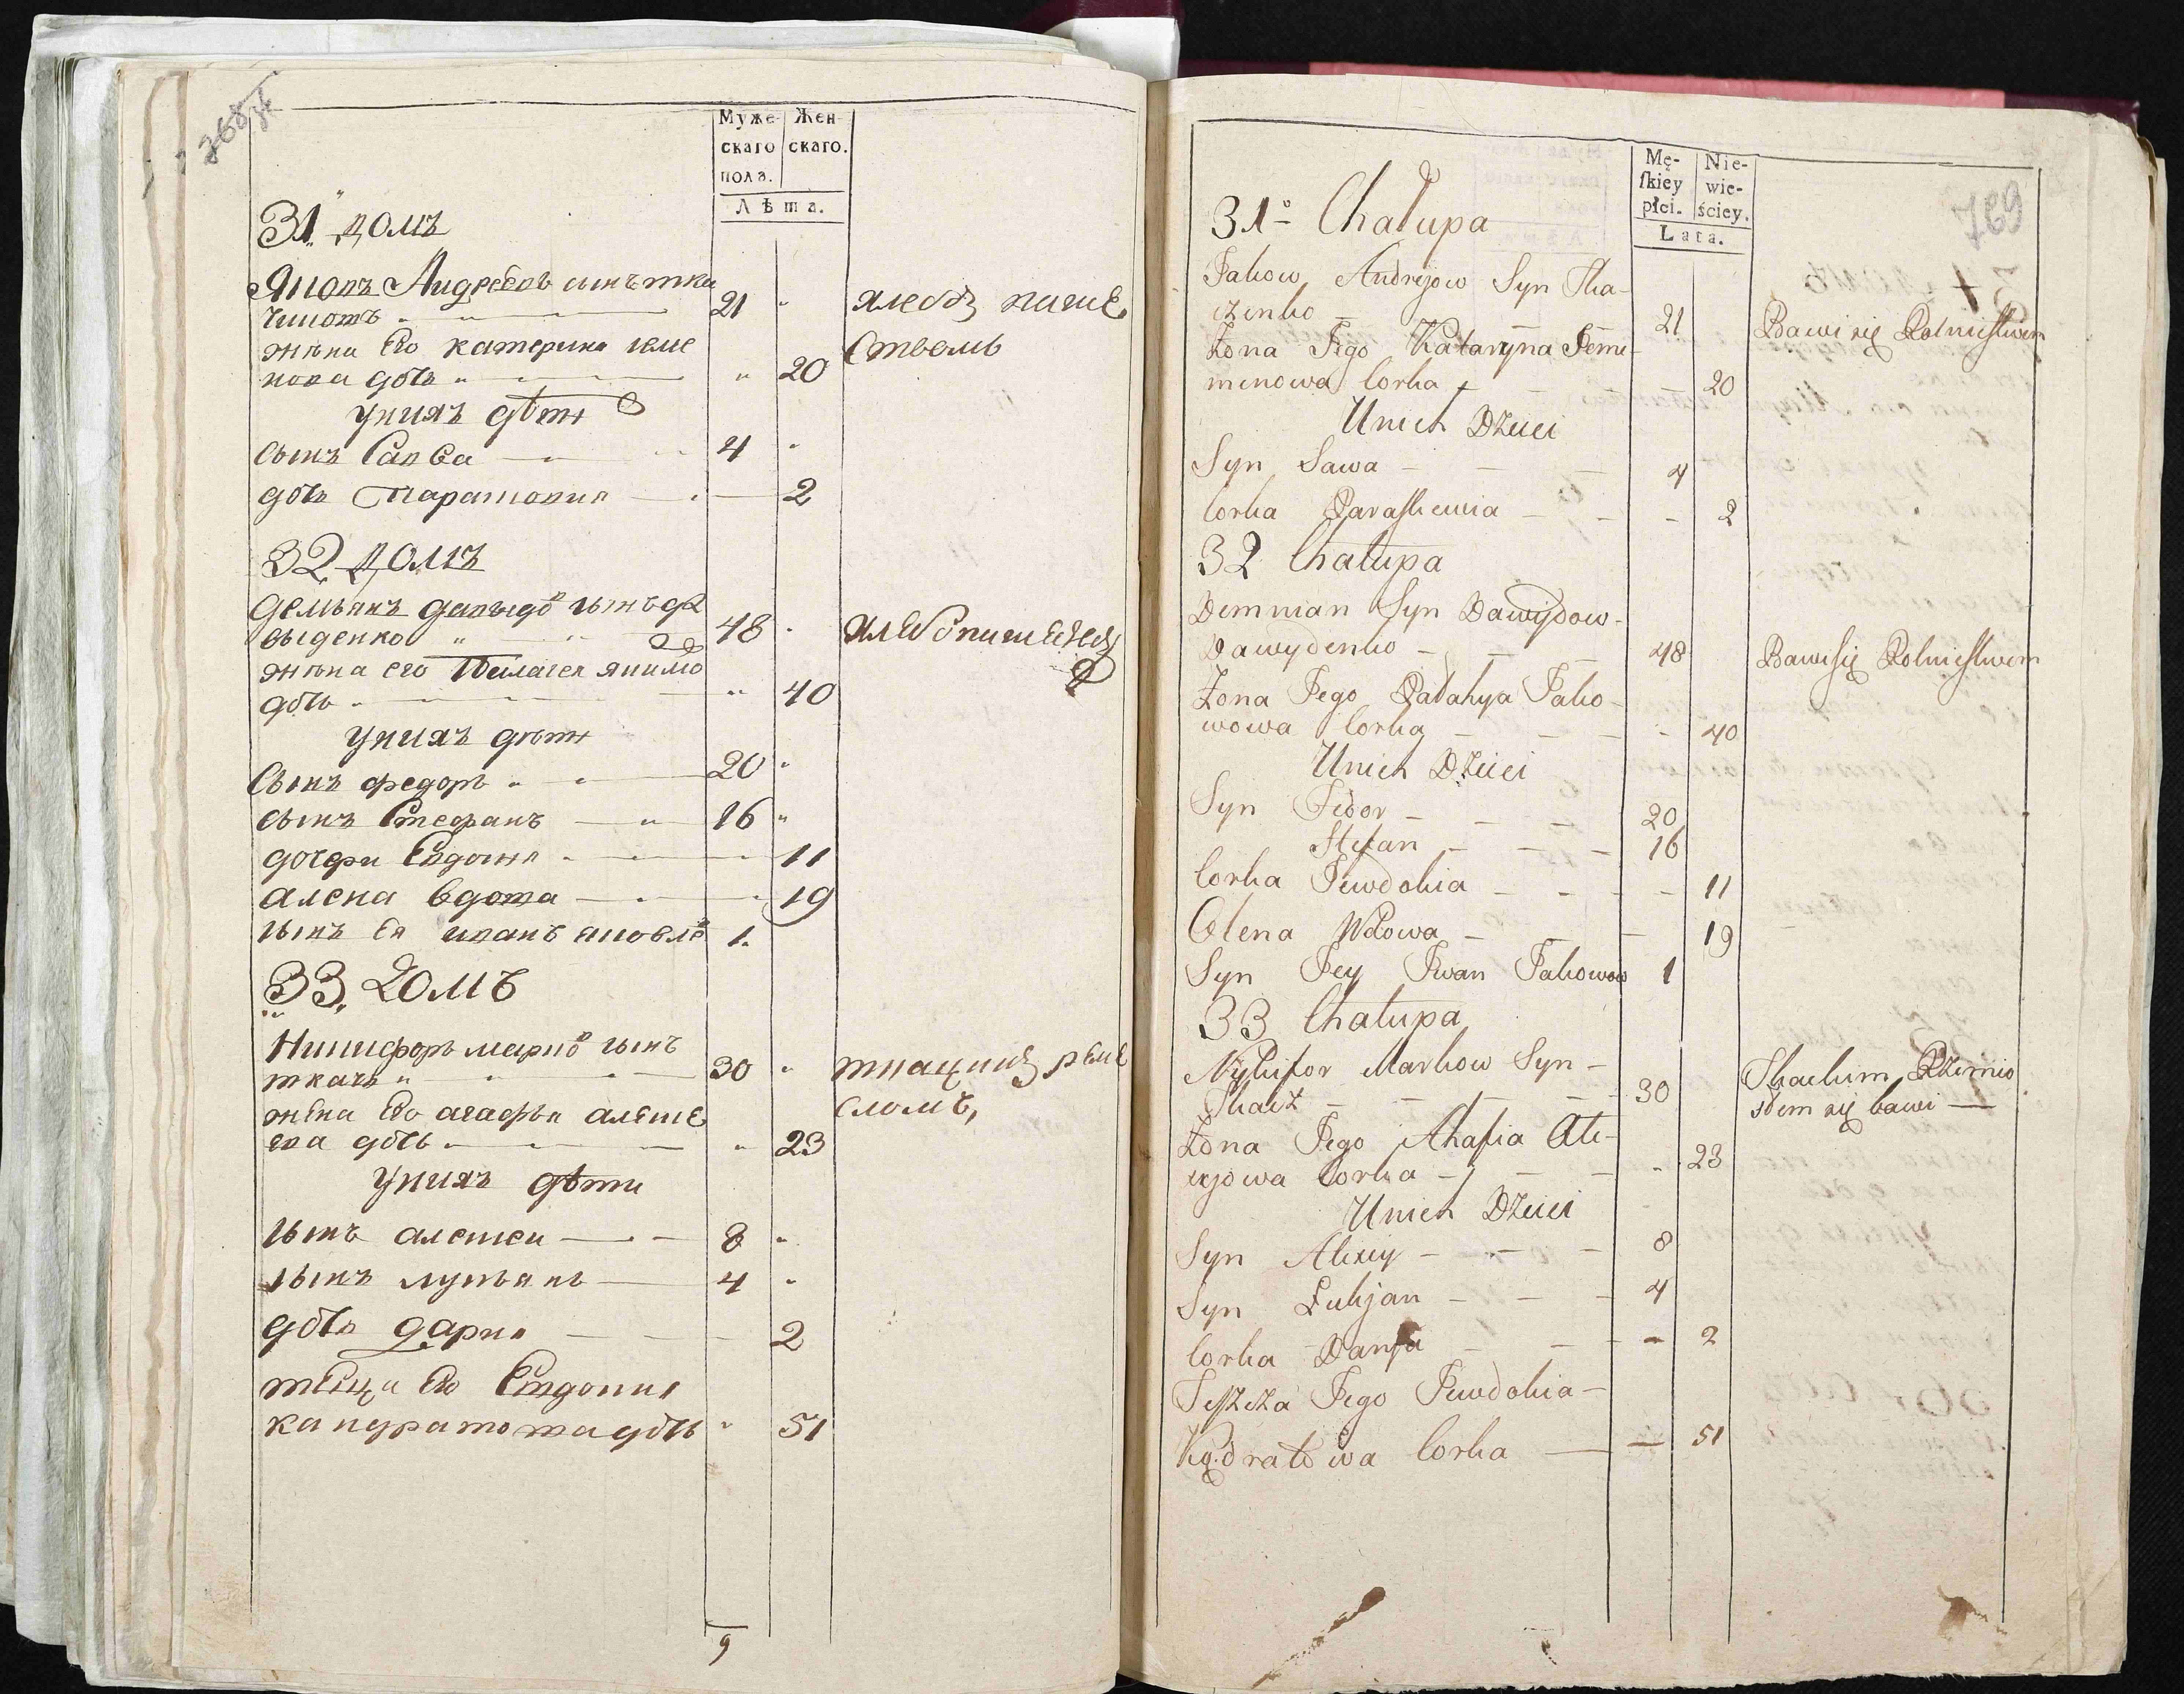 768 зв
Муже-
скаго
пола.
Жен-
скаго.
Лѣта.
31 домъ
Яковъ Андреевъ сынъ тка
ченко 21 хлебо паше
ством
жена Его катерина семе
нова дочь 20
у них дѣти
сынъ Савва 4
дочь Парасковия 2
32 домъ
демьянъ давыдов сынъ да
выденко 48 хлебопашеством
жена его Пелагея якимо
дочь 40
у них дѣти
Сынъ федоръ 20
сынъ Стефанъ 16
дочери Евдокия 11
алена вдова 19
сынъ Ея иванъ яковле 1
33 домъ
Никифоръ марко сынъ
ткачъ 30 ткацкимъ реме
сломъ,
жена Его агафья алексе
ева дочь 23
у них дѣти
сынъ алексеи 8
сынъ лукьянъ 4
дочь дария 2
теща Его Евдокия
кандратова дочь 51
9
769
Mę-
skiey
płci.
Nie-
wie-
ściey.
Lata.
31º Chałupa
Jakow Andryjow Syn Tka-
czenko 21 Bawi się Rolnictwem
Żona Jego Kataryna Seme-
menowa Corka 20
Unich Dzieci
Syn Sawa 4
Corka Paraskiewia 2
32 Chałupa
Demnian Syn Dawydow
Dawydenko 48 Bawi się Rolnictwem
Żona Jego Palahya Jako-
wowa Corka 40
Unich Dzieci
Syn Fedor 20
Stefan 16
Corka Jewdokia 11
Olena Wdowa 19
Syn Jey Iwan Jakowow 1
33 Chałupa
Nykifor Markow Syn
Tkacz 30 Tkackim Rzemio
słem się bawi
Żona Jego Ahafia Ale-
xyjowa Corka 23
Unich Dzieci
Syn Alexiy 8
Syn Łukjan 4
Corka Darya 2
Teszcza Jego Jewdokia
Kądratowa Corka 51